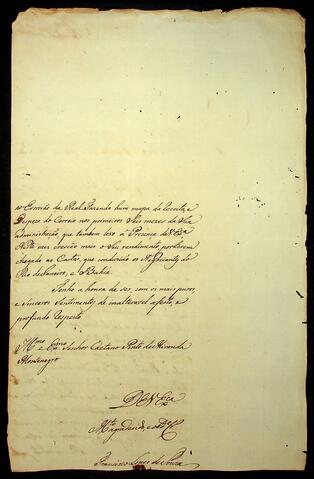 ao Escrivão da Real Fazenda hum mapa da Receita, e
Despeza do Correio nos primeiros Seis mezes da Sua
administração, que tambem levo á Prezença de V Exª
mais o Seu rendimento, por terem
chegado as Cartas, que conduzirão os
Rio de Janeiro, e Bahia.
Tenho a honra de ser, com os mais puros,
e sinceros Sentimentos de inalteravel affecto, e
profundo respeito
Illmo e Exmo Senhor Caetano Pinto de Miranda
Montenegro
De V Exca
Francisco de Souza